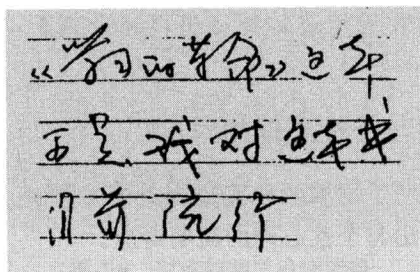 《学习的革命》这本
书是我对这本书
目前流行